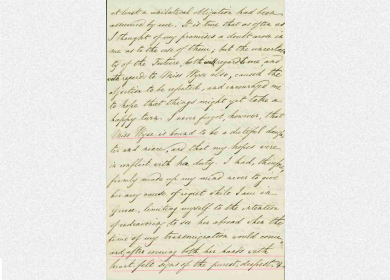 at least a unilateral obligation had been
assumed by me. It is true that as often as
I thought of my promises a doubt arose in
me as to the use of them, but the uncertain
ty of the Future, both with regard to me and
with regard to Miss Wyse also, caused the
objection to be repulsed, and encouraged me
to hope that things might yet take a
happy turn. I never forgot, however, that
Miss Wyse is bound to be a dutiful daugh
ter and niece, and that my hopes were
in conflict with her duty. I had, though,
firmly made up my mind never to give
her any cause of regret while I am in
limiting myself to the intention
of endeavoring to see her abroad when the
time of my transmigration would come
and, after many both her hands with
heart felt signs of the purest, deepest